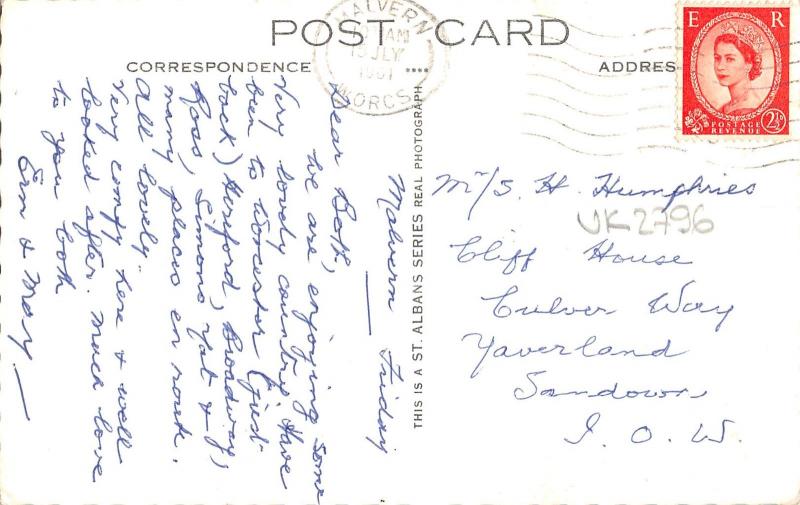 POST CARD
CORRESPONDENCE
ADDRES
MALVERN
AM
JLY
1961
WORCS
E R
POSTAGE
REVENUE
2½D
THIS IS A ST. ALBANS SERIES REAL PHOTOGRAPH.
Malvern Friday
Dear Both,
We are, enjoying some
Very lovely country. Have
been to Worcester (just
back) Hereford, Broadway,
Ross, Simons Yat & of
many places en route.
All lovely.
Very comfy here & well
looked after. Much love
to you both
Ern & May.
Mr/s. H. Humphries
UK2796
Cliff House
Culver Way
Yaverland
Sandown
I. O. W.